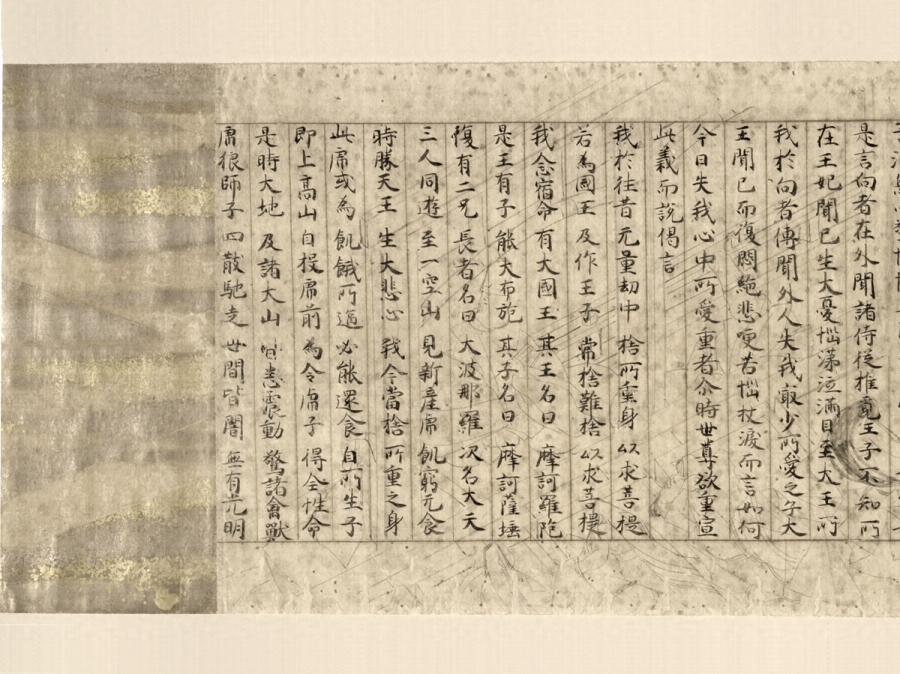 是言向者在外聞諸侍従推覓王子不知所
在王妃聞已生大憂惱涕泣滿目至大王所
我於向者傳聞外人失我㝡少所愛之子大
王聞已而復悶絶悲哽苦惱抆淚而言如何
今日失我心中所愛重者尒時世尊欲重宣
此義而說偈言
我於往昔无量劫中 捨所重身 以求菩提
若為國王 及作王子 常捨難捨 以求菩提
我念宿命 有大國王 其王名曰 摩訶羅陁
是王有子 能大布施 其子名曰 摩訶薩埵
復有二兄 長者名曰 大波那羅 次名大天
三人同遊 至一空山 見新産虎 飢窮无食
時勝大王 生大悲心 我今當捨 所重之身
此虎或為 飢餓所逼 必能還食 自所生子
即上高山 自投虎前 為令虎子 得全性命
是時大地 及諸大山 皆悉震動 驚諸禽獸
虎狼師子 四散馳走 世間皆闇 無有光明